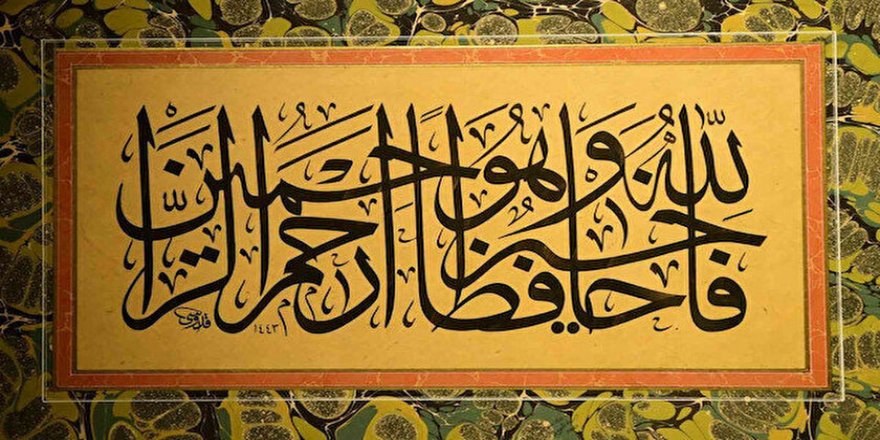 فالله خير حافظا وهو ارحم الراحمين
١٤٤٣